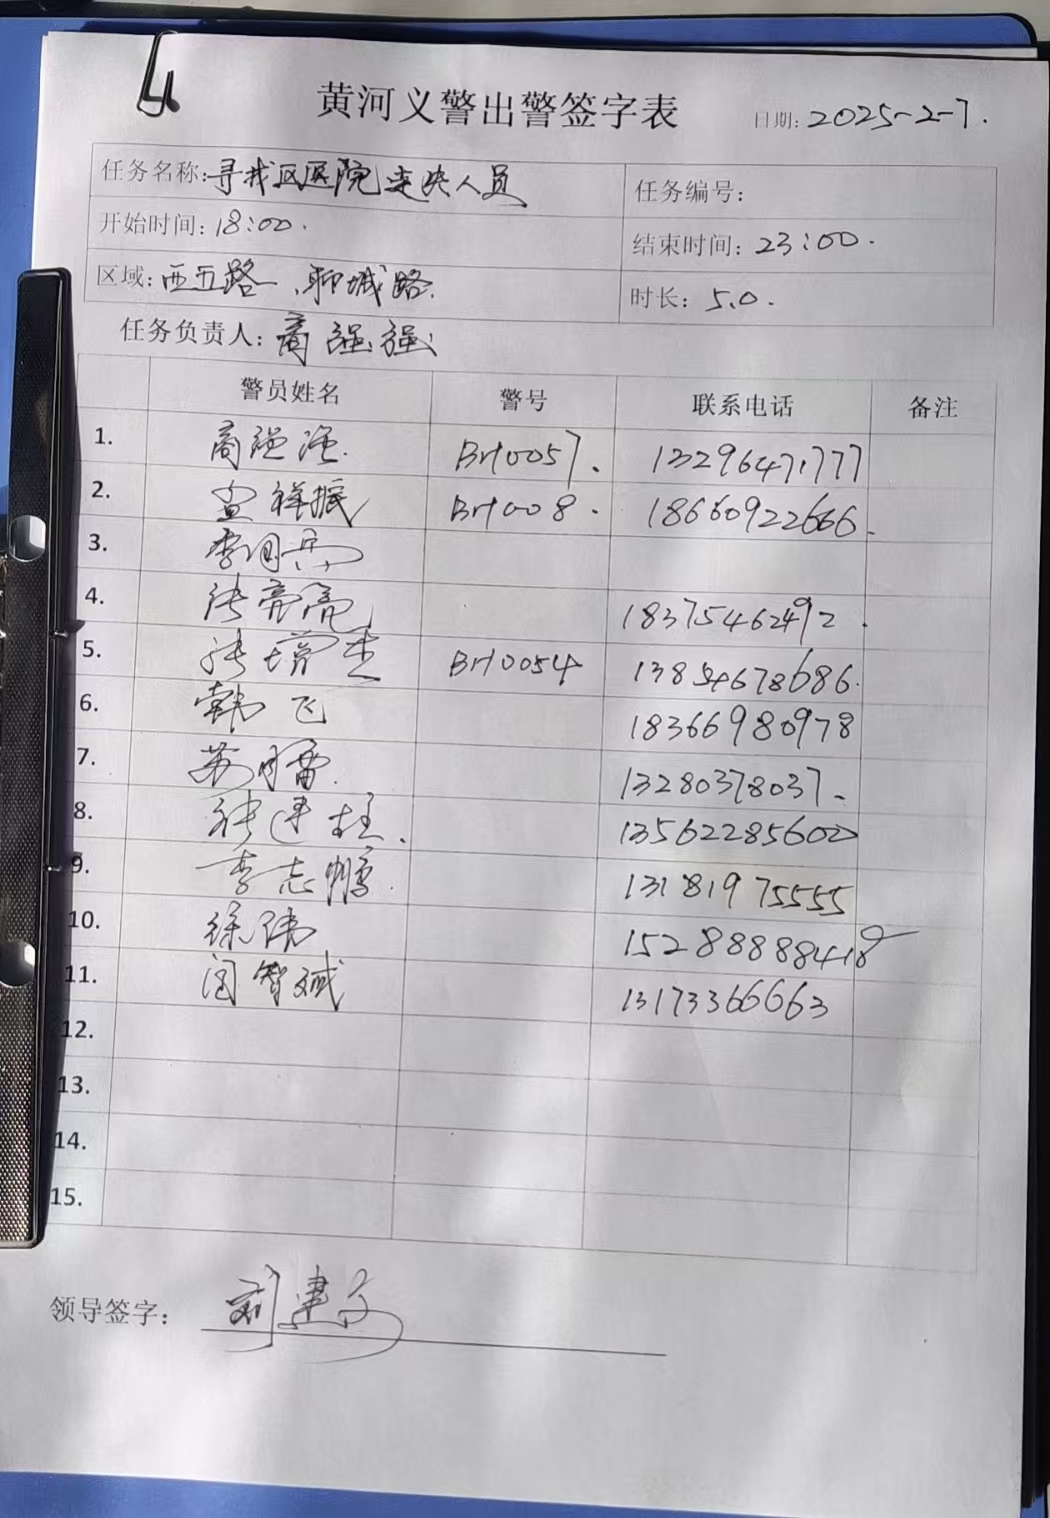 黄河义警出警签字表 日期: 2025-2-7.
任务名称: 寻找区医院走失人员 任务编号:
开始时间: 18:00. 结束时间: 23:00.
区域: 西五路、聊城路. 时长: 5.0.
任务负责人: 商强强
警员姓名 警号 联系电话 备注
1. 商强强. BH0057. 13296471777
2. 宣祥振 BH008. 18660922666.
3. 李同兵
4. 张亮亮 18375462492.
5. 张增杰 BH0054 13854678686.
6. 韩飞 18366980978
7. 苏月雷. 13280378037.
8. 张建柱. 13562285600
9. 李志鹏. 13181975555
10. 徐伟 15288888418
11. 闫智斌 13173366663
12.
13.
14.
15.
领导签字: 刘建